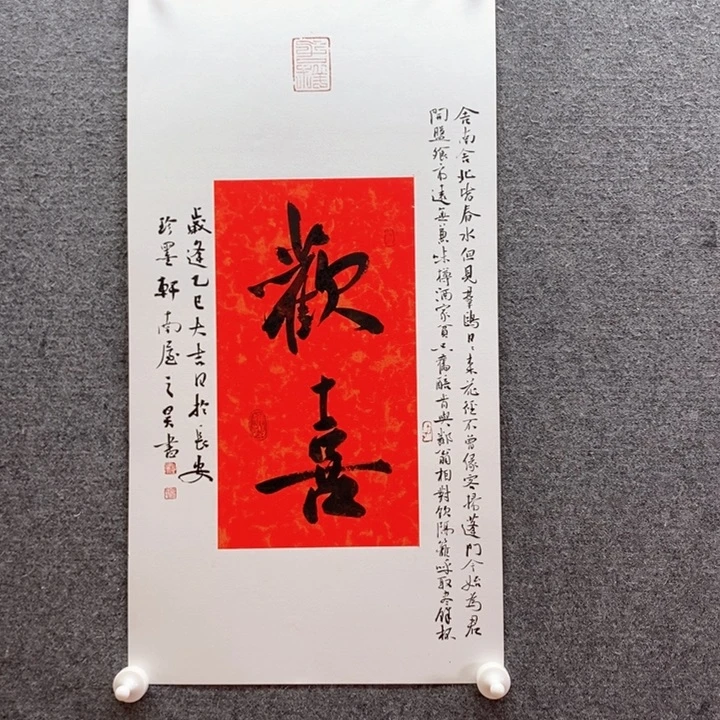 舍南舍北皆春水但見羣鷗日々來花徑不曾緣客掃蓬門今始為君
開盤飧市遠無兼味樽酒家貧只舊醅肯與鄰翁相對飲隔籬呼取盡餘杯
歡喜
歲逢乙巳大吉日於長安
珍墨軒南屋之昊書